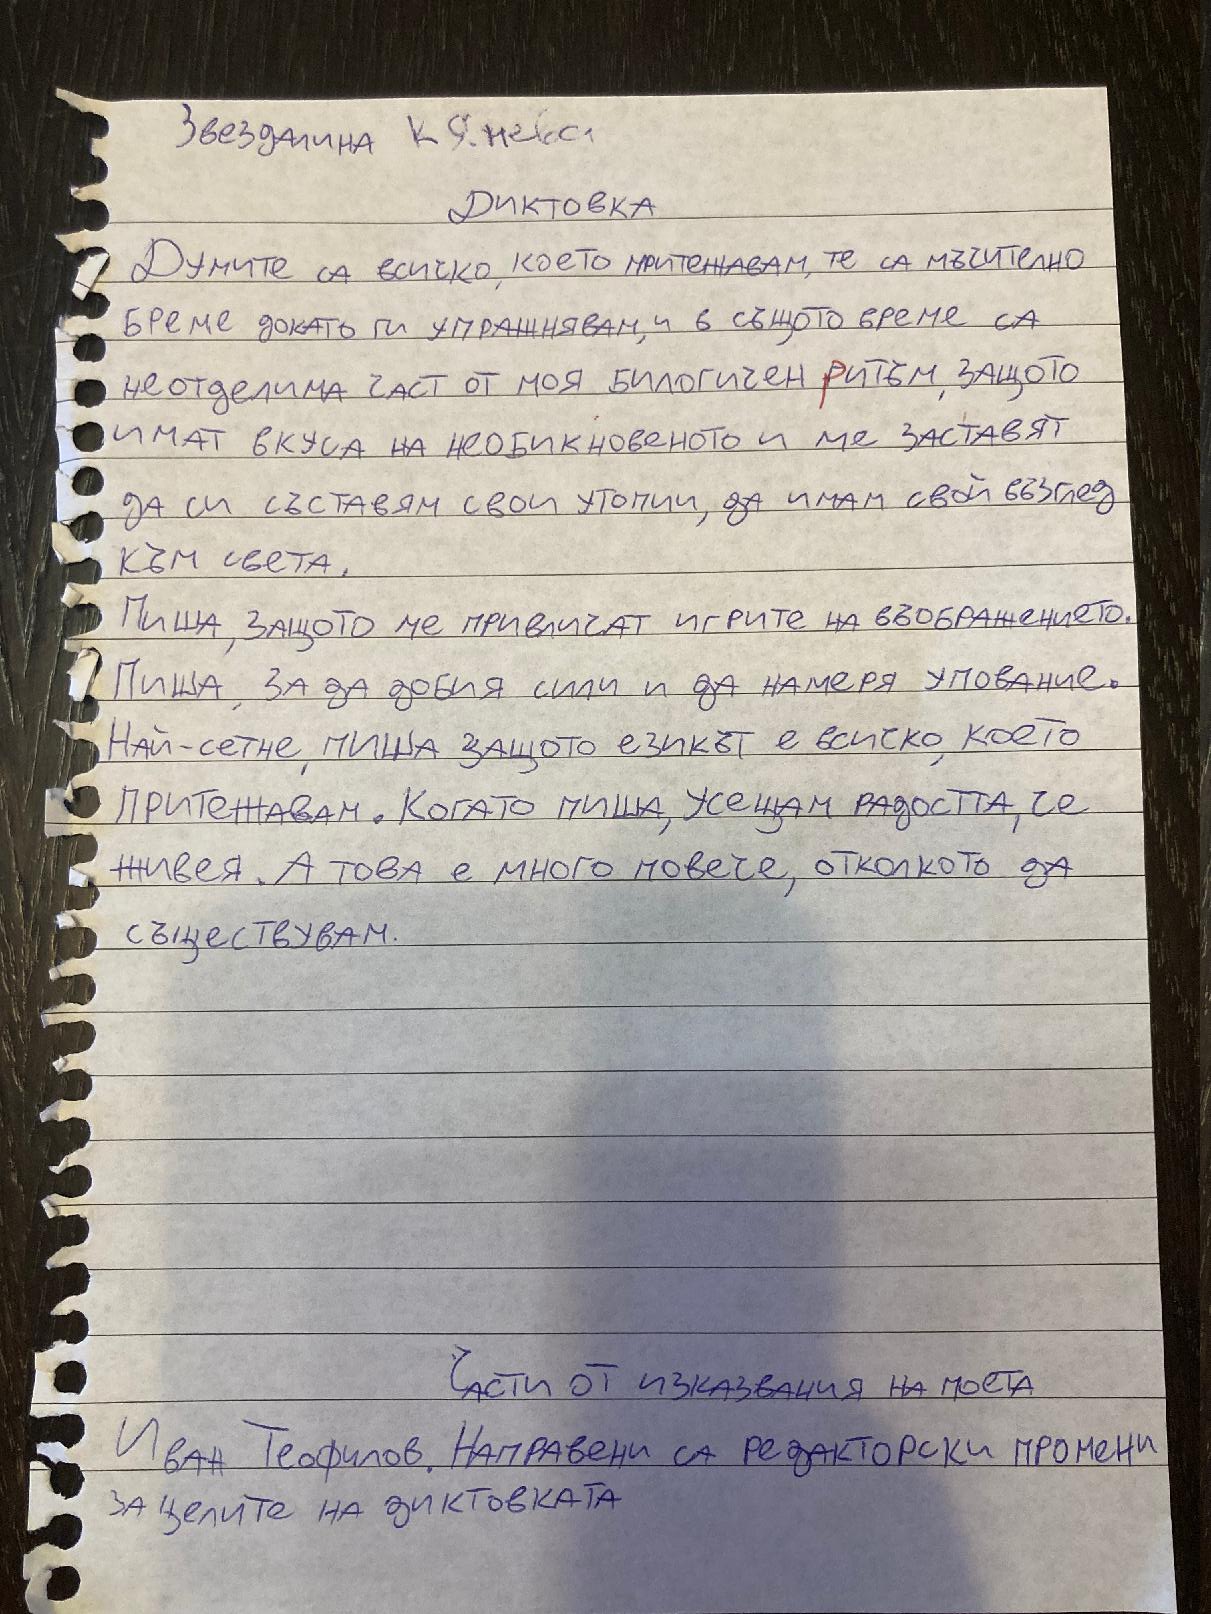 Звездалина К
Диктовка
Думите са всичко, което притежавам, те са мъчително
бреме докато ги упражнявам, и в същото време са
неотделима част от моя билогичен ритъм, защото
имат вкуса на необикновеното и ме заставят
да си съставям свои утопии, да имам свой възглед
към света.
Пиша, защото ме привличат игрите на въображението.
Пиша, за да добия сили и да намеря упование.
Най-сетне, пиша защото езикът е всичко, което
притежавам. Когато пиша, усещам радостта, че
живея. А това е много повече, отколкото да
съществувам.
Части от изказвания на поета
Иван Теофилов. Направени са редакторски промени
за целите на диктовката